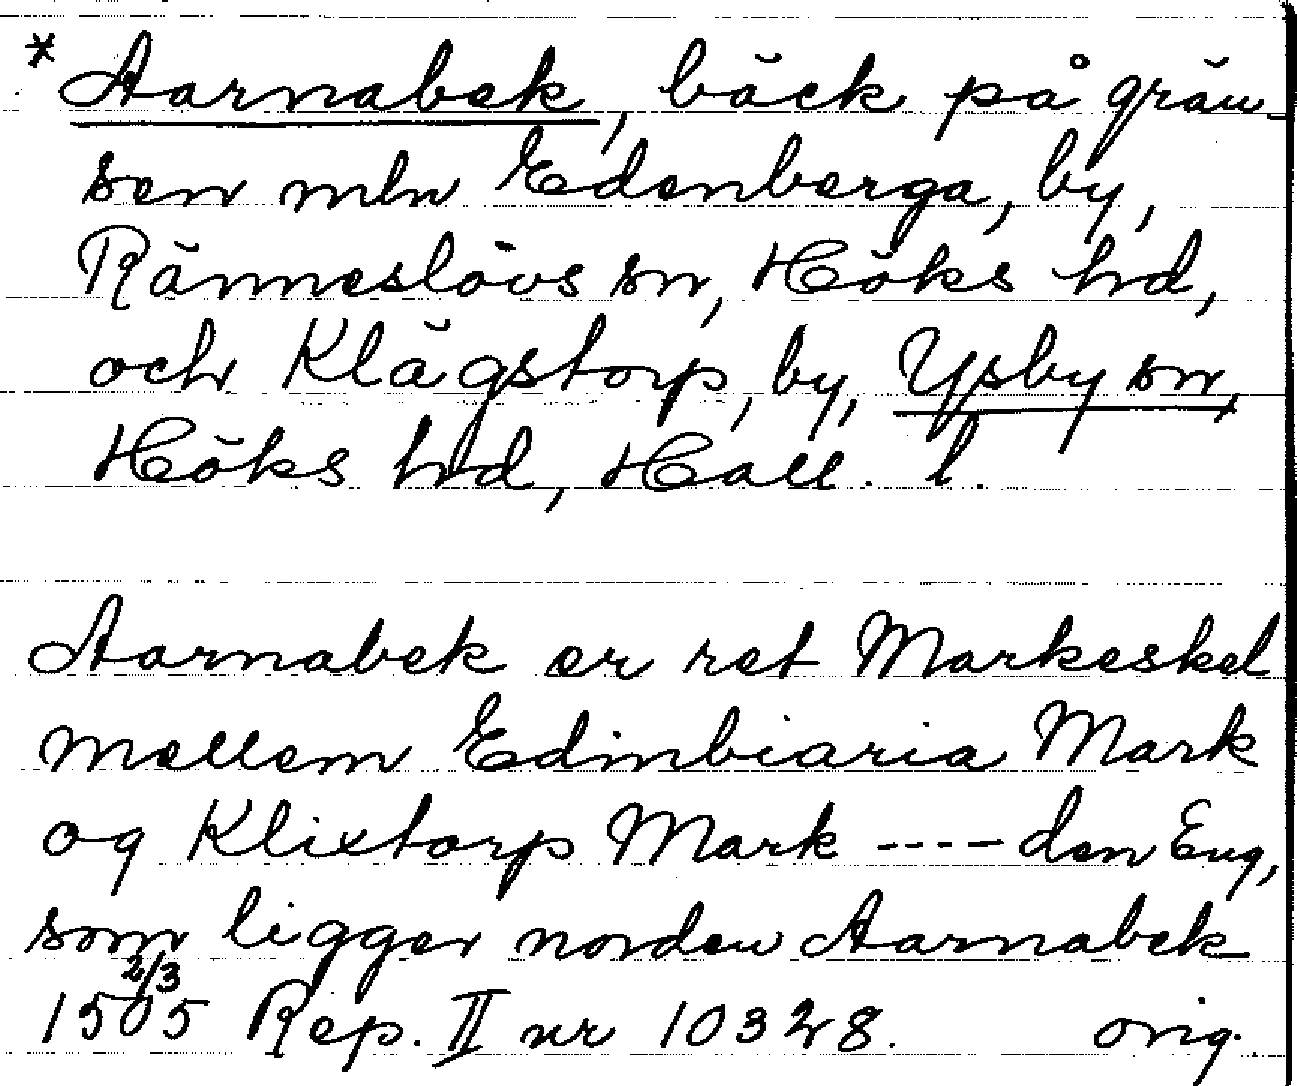 * Aarnabek, bäck på grän-
sen mln Edenberga, by,
Ränneslövs sn, Höks hd,
och Klägstorp, by, Ysby sn,
Höks hd, Hall. l.
Aarnabek er ret Markeskel
mellem Edinbiaria Mark
og Klixtorp Mark ---- den Eng,
som ligger norden Aarnabek
1505 2/3 Rep. II nr 10328. orig.